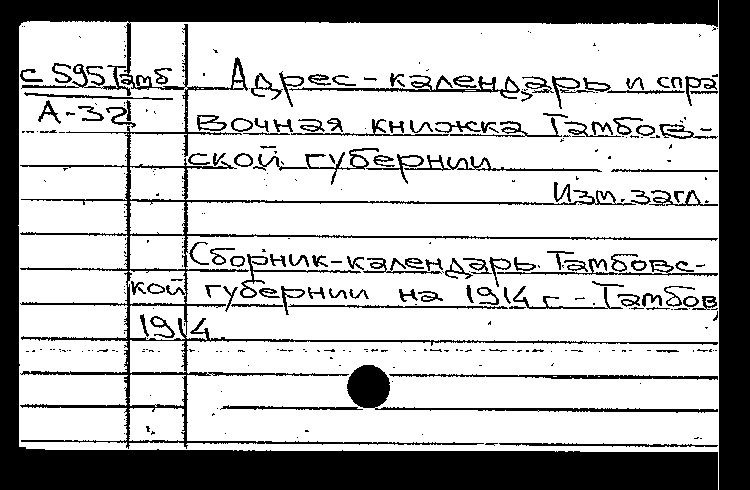 с 595 Тамб
А-32
Адрес-календарь и спра
вочная книжка Тамбов-
ской губернии.
Изм. загл.
Сборник-календарь Тамбовс-
кой губернии на 1914 г. - Тамбов,
1914